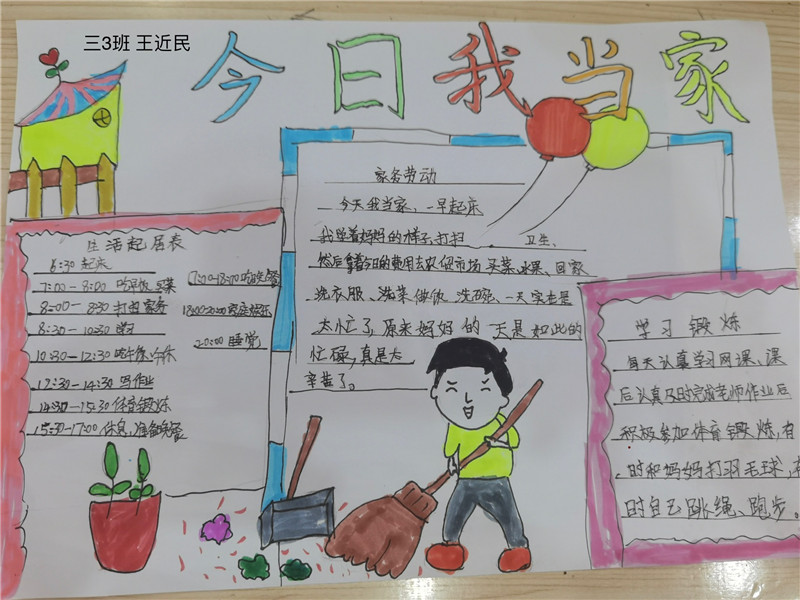 三3班 王近民
今日我当家
生活起居表
6:30 起床
7:00-8:00 吃早饭 买菜
8:00-8:30 打扫家务
8:30-10:30
10:30-12:30 吃午饭 午休
12:30-14:30 写作业
14:30-15:30 体育锻炼
15:30-17:00 休息,准备晚餐
17:00-18:00 吃晚餐
18:00-20:00 家庭娱乐
20:00 睡觉
家务劳动
今天我当家,一早起床
我学着妈妈的样子,打扫 卫生、
然后拿着今日的费用去农贸市场 买菜、水果、回家
洗衣服、洗菜 做饭 洗碗,一天实在是
太忙了,原来妈妈 的一天是 如此的
忙碌,真是太
辛苦了。
学习 锻炼
每天认真学习网课、课
后认真及时完成老师作业后
积极参加体育锻炼,有
时和妈妈打羽毛球,有
时自己跳绳、跑步。